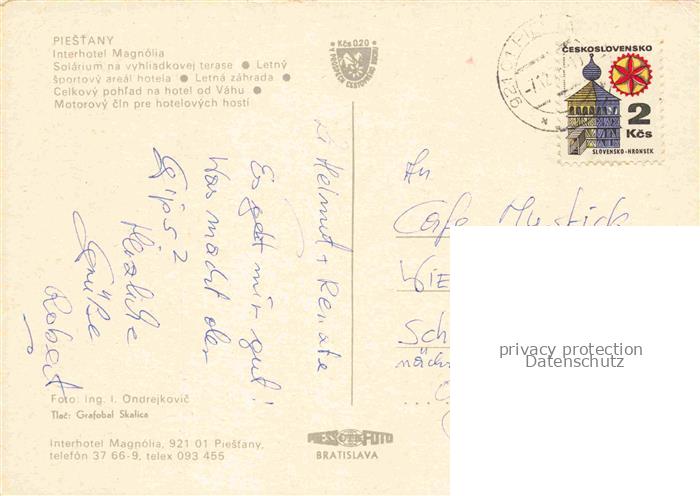 PIEŠŤANY
Interhotel Magnólia
Solárium na vyhliadkovej terase ● Letný
športový areál hotela ● Letná záhrada ●
Celkový pohľad na hotel od Váhu ●
Motorový čln pre hotelových hostí
Kčs 0,20
ČESKOSLOVENSKO
2
Kčs
SLOVENSKO-HRONSEK
L. Helmut + Renate
Es geht mir gut!
Was macht der
Gips?
Herzliche
Grüße
Robert
An
Cafe
WIE
Sch
nächs
privacy protection
Datenschutz
Foto: Ing. I. Ondrejkovič
Tlač: Grafobal Skalica
Interhotel Magnólia, 921 01 Piešťany,
telefón 37 66-9, telex 093 455
PRESSFOTO
BRATISLAVA